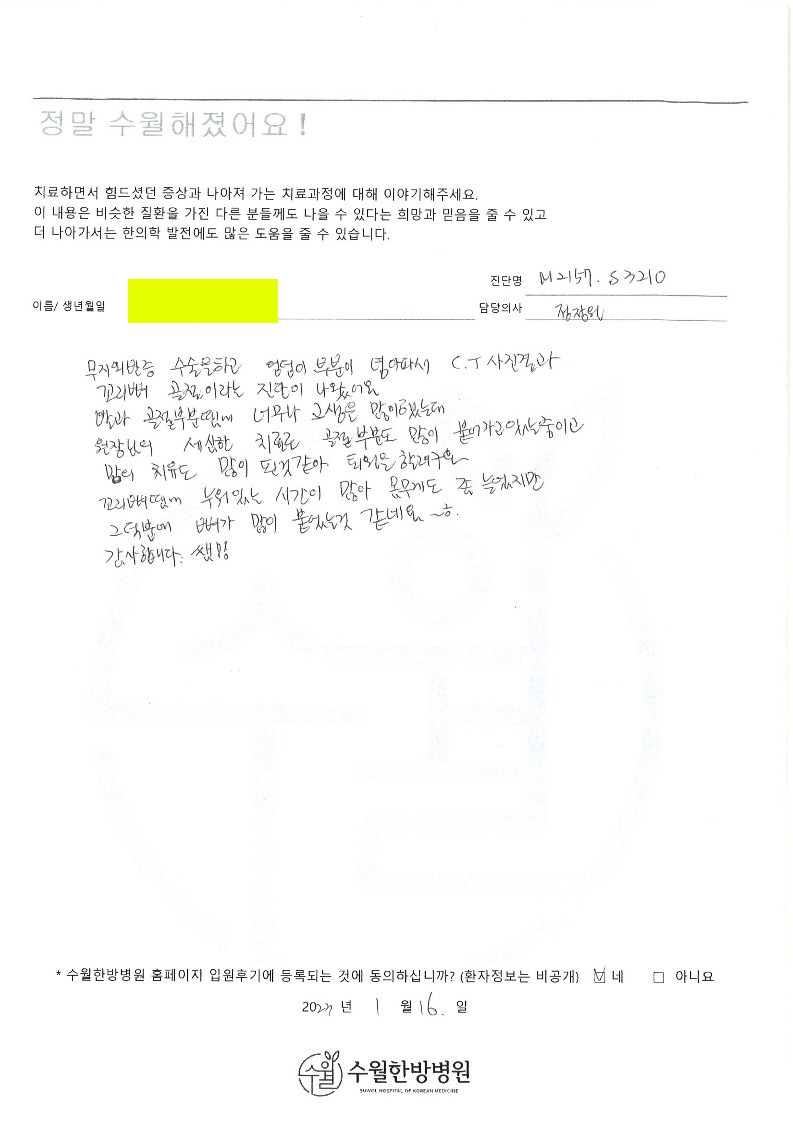 정말 수월해졌어요!
치료하면서 힘드셨던 증상과 나아져 가는 치료과정에 대해 이야기해주세요.
이 내용은 비슷한 질환을 가진 다른 분들께도 나을 수 있다는 희망과 믿음을 줄 수 있고
더 나아가서는 한의학 발전에도 많은 도움을 줄 수 있습니다.
진단명 M2157. S3210
이름/ 생년월일
담당의사
무지외반증 수술을하고 엉덩이 부분이 넘아파서 C.T 사진결과
꼬리뼈 골절이라는 진단이 나왔어요
발과 골절부분땜에 너무나 고생은 많이했는데
원장님의 세심한 치료로 골절부분도 많이 붙어가고있는중이고
발의 치유도 많이 된것같아 퇴원을 할려구요
꼬리뼈땜에 누워있는 시간이 많아 몸무게도 좀 늘었지만
그덕분에 뼈가 많이 붙었는것 같네요 ~ㅎ.
감사합니다.
* 수월한방병원 홈페이지 입원후기에 등록되는 것에 동의하십니까? (환자정보는 비공개) ☑ 네 □ 아니요
20 년 1 월 16. 일
수월 수월한방병원
SUWOL HOSPITAL OF KOREAN MEDICINE